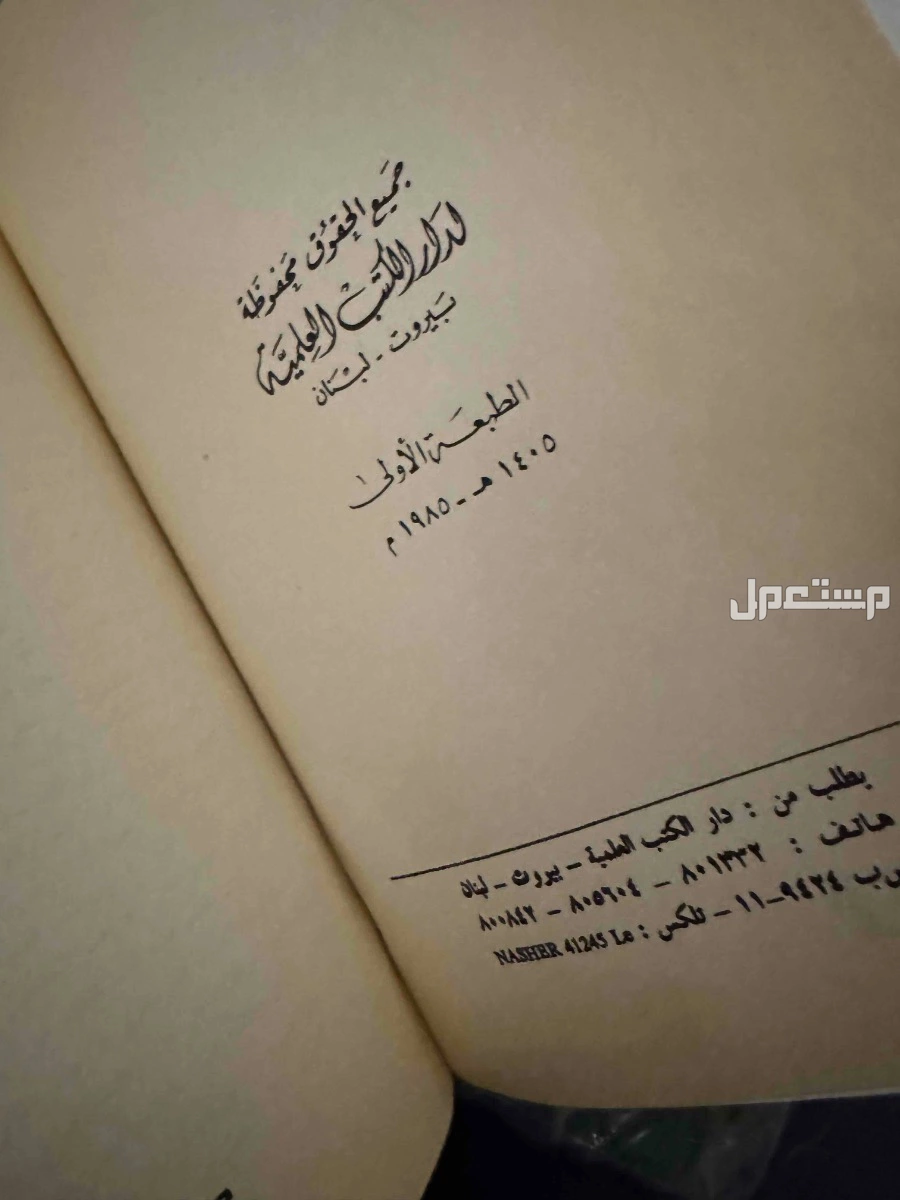 جميع الحقوق محفوظة
لدار الكتب العلمية
بيروت - لبنان
الطبعة الأولى
١٤٠٥ هـ - ١٩٨٥ م
مستعمل
يطلب من : دار الكتب العلمية - بيروت - لبنان
هاتف : ٨٠١٣٣٢ - ٨٠٥٦٠٤ - ٨٠٠٨٤٢
ص ب ٩٤٢٤-١١ - تلكس : NASHER 41245 Le